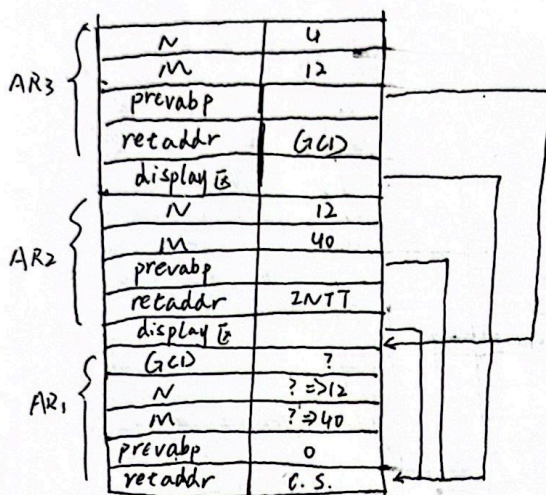 AR3
N 4
M 12
prevabp
retaddr GCD
display区
AR2
N 12
M 40
prevabp
retaddr INTT
display区
AR1
GCD ?
N ?⇒12
M ?⇒40
prevabp 0
retaddr C.S.